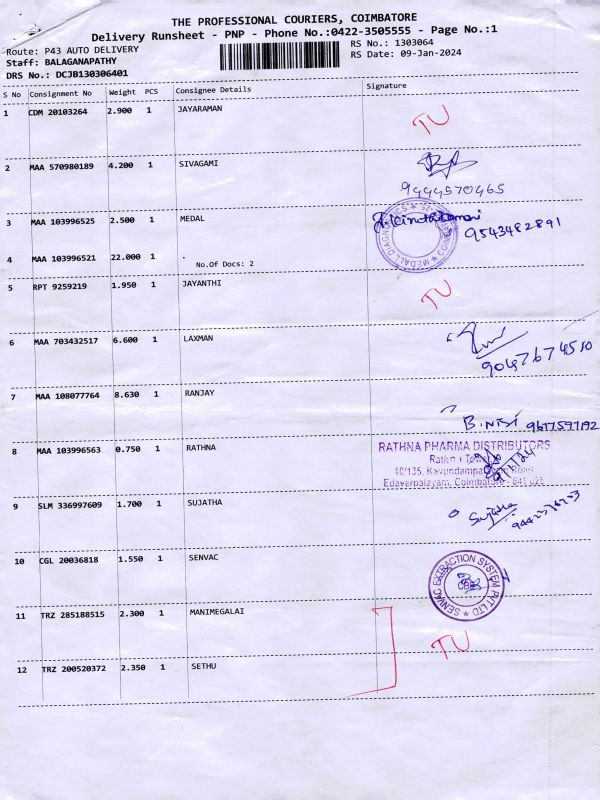 THE PROFESSIONAL COURIERS, COIMBATORE
Delivery Runsheet - PNP - Phone No.:0422-3505555 - Page No.:1
Route: P43 AUTO DELIVERY RS No.: 1303064
Staff: BALAGANAPATHY RS Date: 09-Jan-2024
DRS No.: DCJB130306401
S No Consignment No Weight PCS Consignee Details Signature
1 CDM 20103264 2.900 1 JAYARAMAN TU
2 MAA 570980189 4.200 1 SIVAGAMI
9444570465
3 MAA 103996525 2.500 1 MEDAL 9543482891
MEDALL DIAGNOSTICS
4 MAA 103996521 22.000 1 .
No.Of Docs: 2
5 RPT 9259219 1.950 1 JAYANTHI TU
6 MAA 703432517 6.600 1 LAXMAN
9047674510
7 MAA 108077764 8.630 1 RANJAY
9677597192
8 MAA 103996563 0.750 1 RATHNA RATHNA PHARMA DISTRIBUTORS
Rathna Tower
10/135, Kavundampalayam Road
Edayarpalayam, Coimbatore - 641 025
9 SLM 336997609 1.700 1 SUJATHA Sujatha
10 CGL 20036818 1.550 1 SENVAC SENVAC EXTRACTION SYSTEM PVT LTD
CBE
11 TRZ 285188515 2.300 1 MANIMEGALAI
TU
12 TRZ 200520372 2.350 1 SETHU